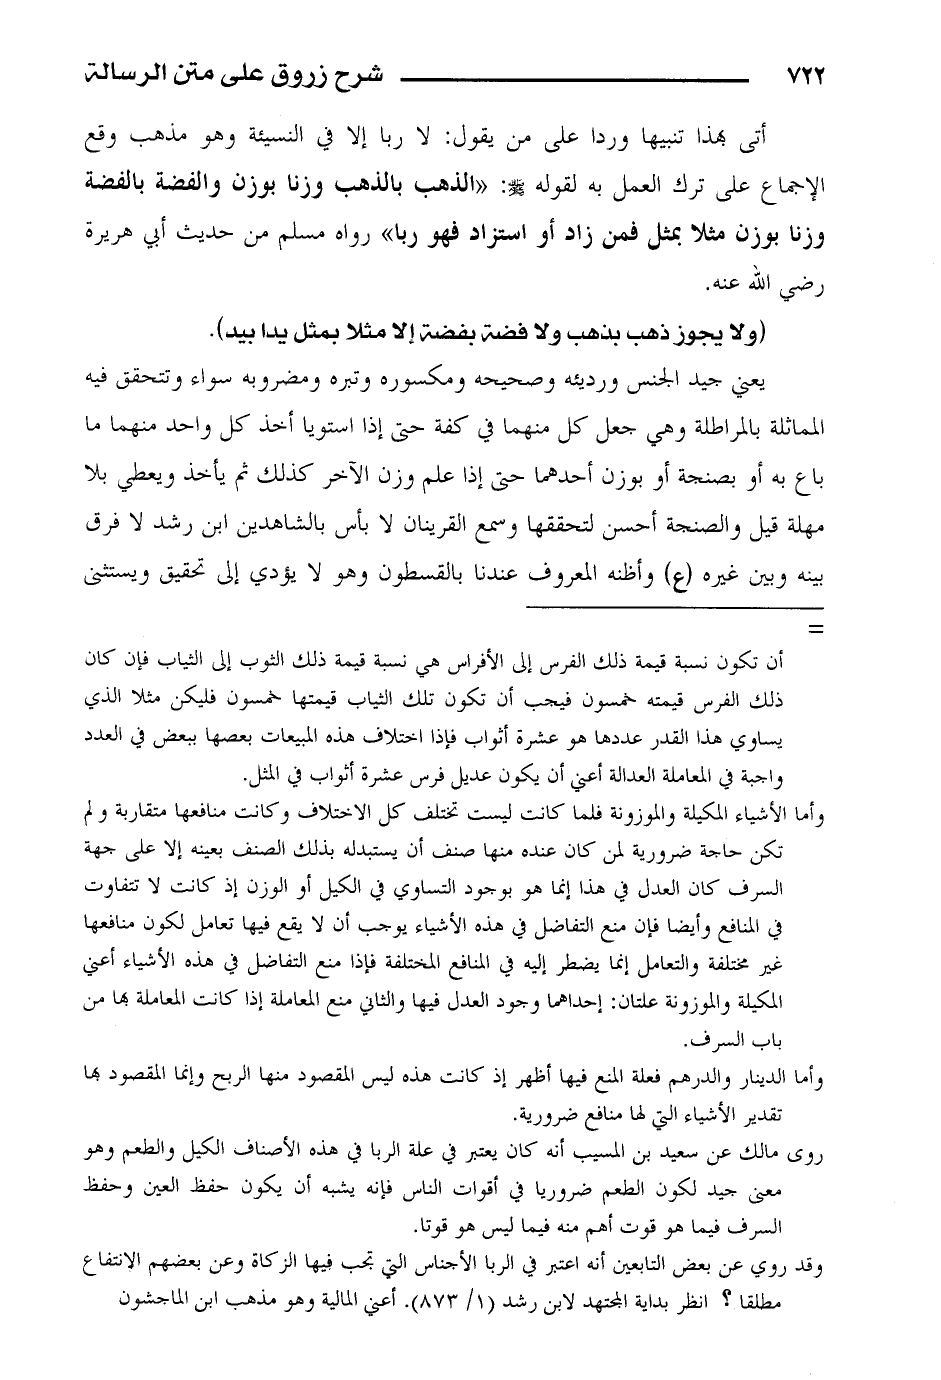 ٧٢٢ شرح زروق على متن الرسالة
أتى بهذا تنبيها وردا على من يقول: لا ربا إلا في النسيئة وهو مذهب وقع
الإجماع على ترك العمل به لقوله ﷺ: «الذهب بالذهب وزنا بوزن والفضة بالفضة
وزنا بوزن مثلا بمثل فمن زاد أو استزاد فهو ربا» رواه مسلم من حديث أبي هريرة
رضي الله عنه.
(ولا يجوز ذهب بذهب ولا فضة بفضة إلا مثلا بمثل يدا بيد).
يعني جيد الجنس ورديئه وصحيحه ومكسوره وتبره ومضروبه سواء وتتحقق فيه
المماثلة بالمراطلة وهي جعل كل منهما في كفة حتى إذا استويا أخذ كل واحد منهما ما
باع به أو بصنجة أو بوزن أحدهما حتى إذا علم وزن الآخر كذلك ثم يأخذ ويعطي بلا
مهلة قيل والصنجة أحسن لتحققها وسمع القرينان لا بأس بالشاهدين ابن رشد لا فرق
بينه وبين غيره (ع) وأظنه المعروف عندنا بالقسطون وهو لا يؤدي إلى تحقيق ويستثنى
=
أن تكون نسبة قيمة ذلك الفرس إلى الأفراس هي نسبة قيمة ذلك الثوب إلى الثياب فإن كان
ذلك الفرس قيمته خمسون فيجب أن تكون تلك الثياب قيمتها خمسون فليكن مثلا الذي
يساوي هذا القدر عددها هو عشرة أثواب فإذا اختلاف هذه المبيعات بعصها ببعض في العدد
واجبة في المعاملة العدالة أعني أن يكون عديل فرس عشرة أثواب في المثل.
وأما الأشياء المكيلة والموزونة فلما كانت ليست تختلف كل الاختلاف وكانت منافعها متقاربة ولم
تكن حاجة ضرورية لمن كان عنده منها صنف أن يستبدله بذلك الصنف بعينه إلا على جهة
السرف كان العدل في هذا إنما هو بوجود التساوي في الكيل أو الوزن إذ كانت لا تتفاوت
في المنافع وأيضا فإن منع التفاضل في هذه الأشياء يوجب أن لا يقع فيها تعامل لكون منافعها
غير مختلفة والتعامل إنما يضطر إليه في المنافع المختلفة فإذا منع التفاضل في هذه الأشياء أعني
المكيلة والموزونة علتان: إحداهما وجود العدل فيها والثاني منع المعاملة إذا كانت المعاملة بها من
باب السرف.
وأما الدينار والدرهم فعلة المنع فيها أظهر إذ كانت هذه ليس المقصود منها الربح وإنما المقصود بها
تقدير الأشياء التي لها منافع ضرورية.
روى مالك عن سعيد بن المسيب أنه كان يعتبر في علة الربا في هذه الأصناف الكيل والطعم وهو
معنى جيد لكون الطعم ضروريا في أقوات الناس فإنه يشبه أن يكون حفظ العين وحفظ
السرف فيما هو قوت أهم منه فيما ليس هو قوتا.
وقد روي عن بعض التابعين أنه اعتبر في الربا الأجناس التي تجب فيها الزكاة وعن بعضهم الانتفاع
مطلقا ؟ انظر بداية المجتهد لابن رشد (١/ ٨٧٣). أعني المالية وهو مذهب ابن الماجشون